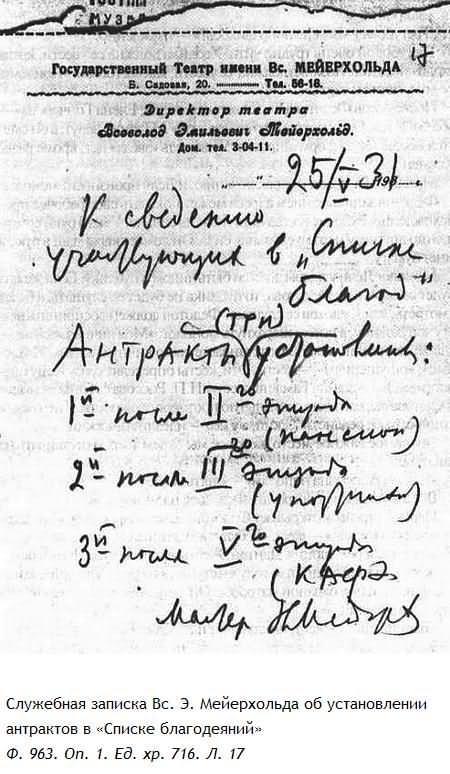 МУЗЕ
17
Государственный Театр имени Вс. МЕЙЕРХОЛЬДА
Б. Садовая, 20. Тел. 56-18.
Директор театра
Всеволод Эмильевич Мейерхольд.
Дом. тел. 3-04-11.
25/V 31
193
К сведению
участвующих в „Списке
благод"
(три)
Антракты установлены:
1й после II го эпизода
(пансион)
2й после III го эпизода
(у портнихи)
3й после V го эпизода
(КАФЭ
Служебная записка Вс. Э. Мейерхольда об установлении
антрактов в «Списке благодеяний»
Ф. 963. Оп. 1. Ед. хр. 716. Л. 17